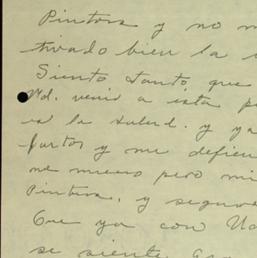 Pintora y no m
tivado bien la
Siento tanto, que
Vd. venir a esta p
es la salud. y ya
fartos y me defien
me muero pero mi
Pintura, y segura
Que ya con Vd
se siente